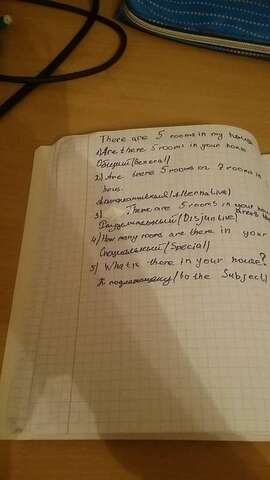 There are 5 rooms in my house
1) Are there 5 rooms in your house
Общий (General)
2) Are there 5 rooms or 7 rooms in
hous.
(Alternative)
3) There are 5 rooms in your
Разделительный (Disjuntive)
4) How many rooms are there in your
Специальный (Special)
5) What is there in your house?
К подлежащему (to the Subject)